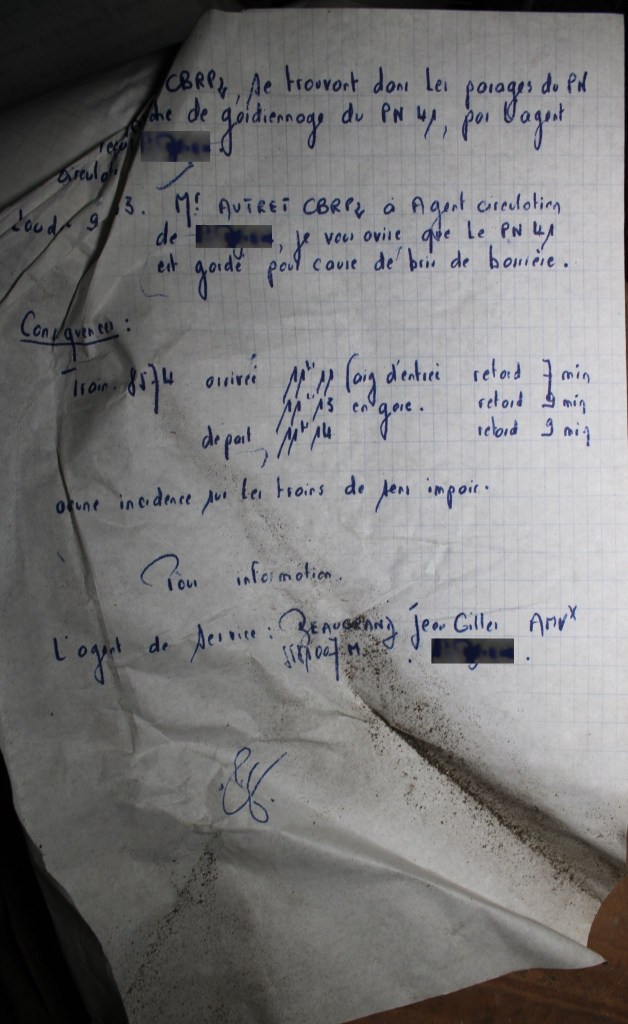 CBRPz, se trouvant dans les parages du PN
de gardiennage du PN 41, par l'agent
circulat
9 13. Mr AUTRET CBRPz à Agent circulation
de , je vous avise que le PN 41
est gardé pour cause de bris de barrière.
Conséquences :
Train 85714 arrivée 11h11 (aig d'entrée retard 7 min
11h13 en gare. retard 9 min
départ, 11h14 retard 9 min
aucune incidence sur les trains de sens impair.
Pour information.
L'agent de service : BEAUGRAND Jean Gilles AMVX